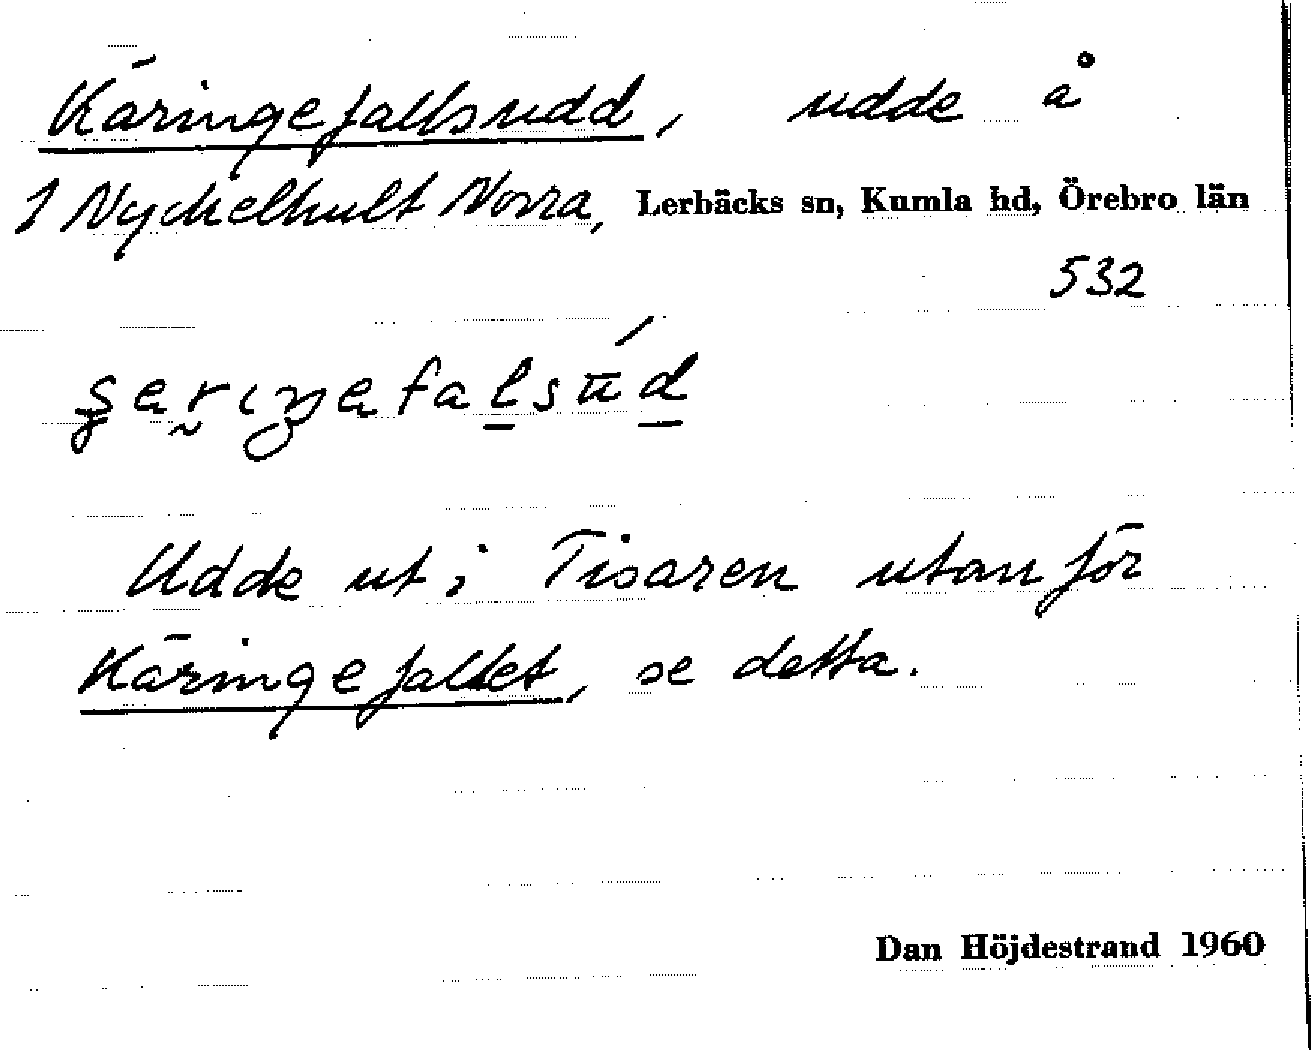 Käringefallsudd, udde å
1 Nyckelhult Norra, Lerbäcks sn, Kumla hd, Örebro län
532
Udde ut i Tisaren utanför
Käringefallet, se detta.
Dan Höjdestrand 1960